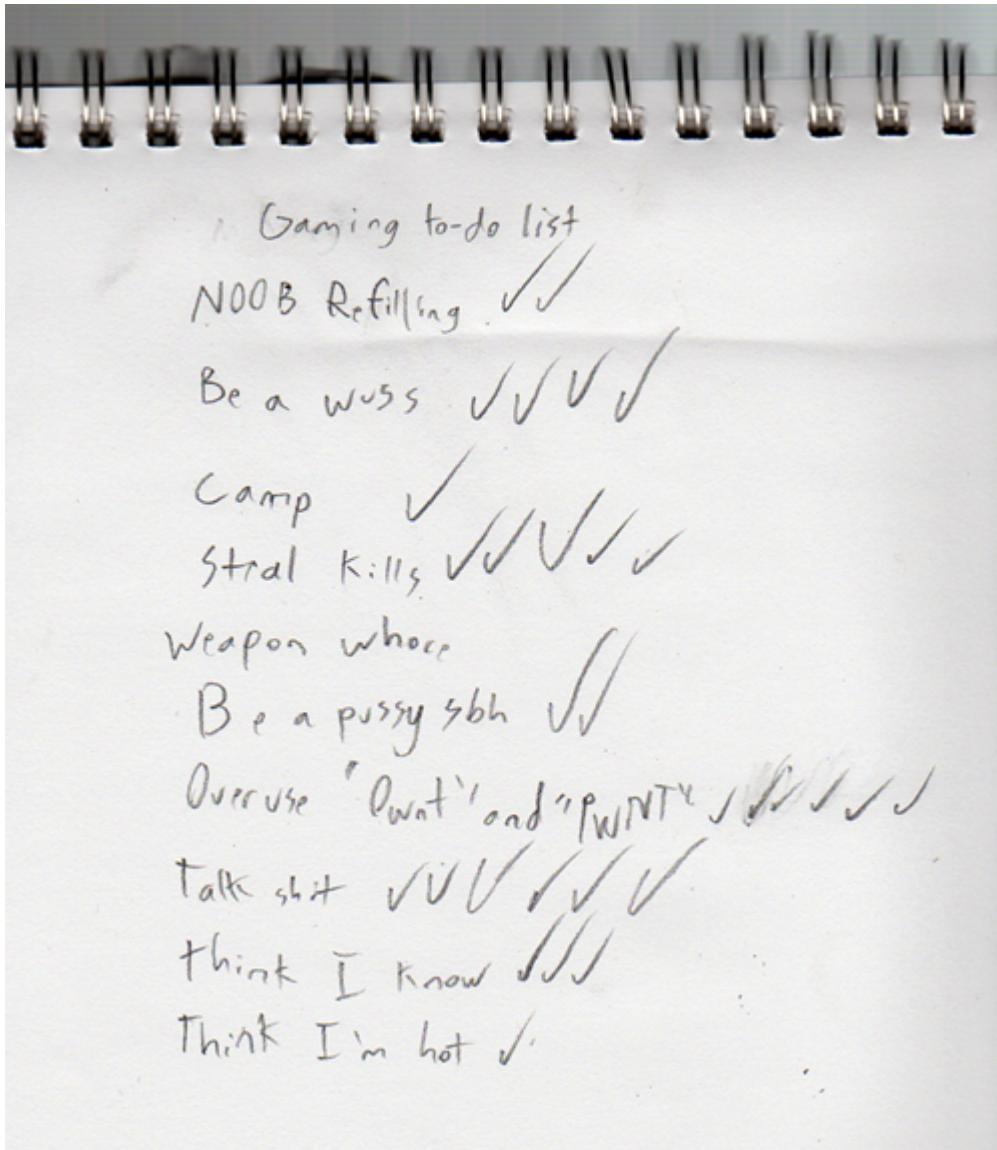 Gaming to-do list
NOOB Refilling ✓✓
Be a wuss ✓✓✓✓
Camp ✓
Stral kills ✓✓✓✓✓
Weapon whore
Be a pussy sbh ✓✓
Overuse "Ownt" and "PWNT" ✓✓✓✓✓✓
Talk shit ✓✓✓✓✓✓
think I know ✓✓✓
Think I'm hot ✓